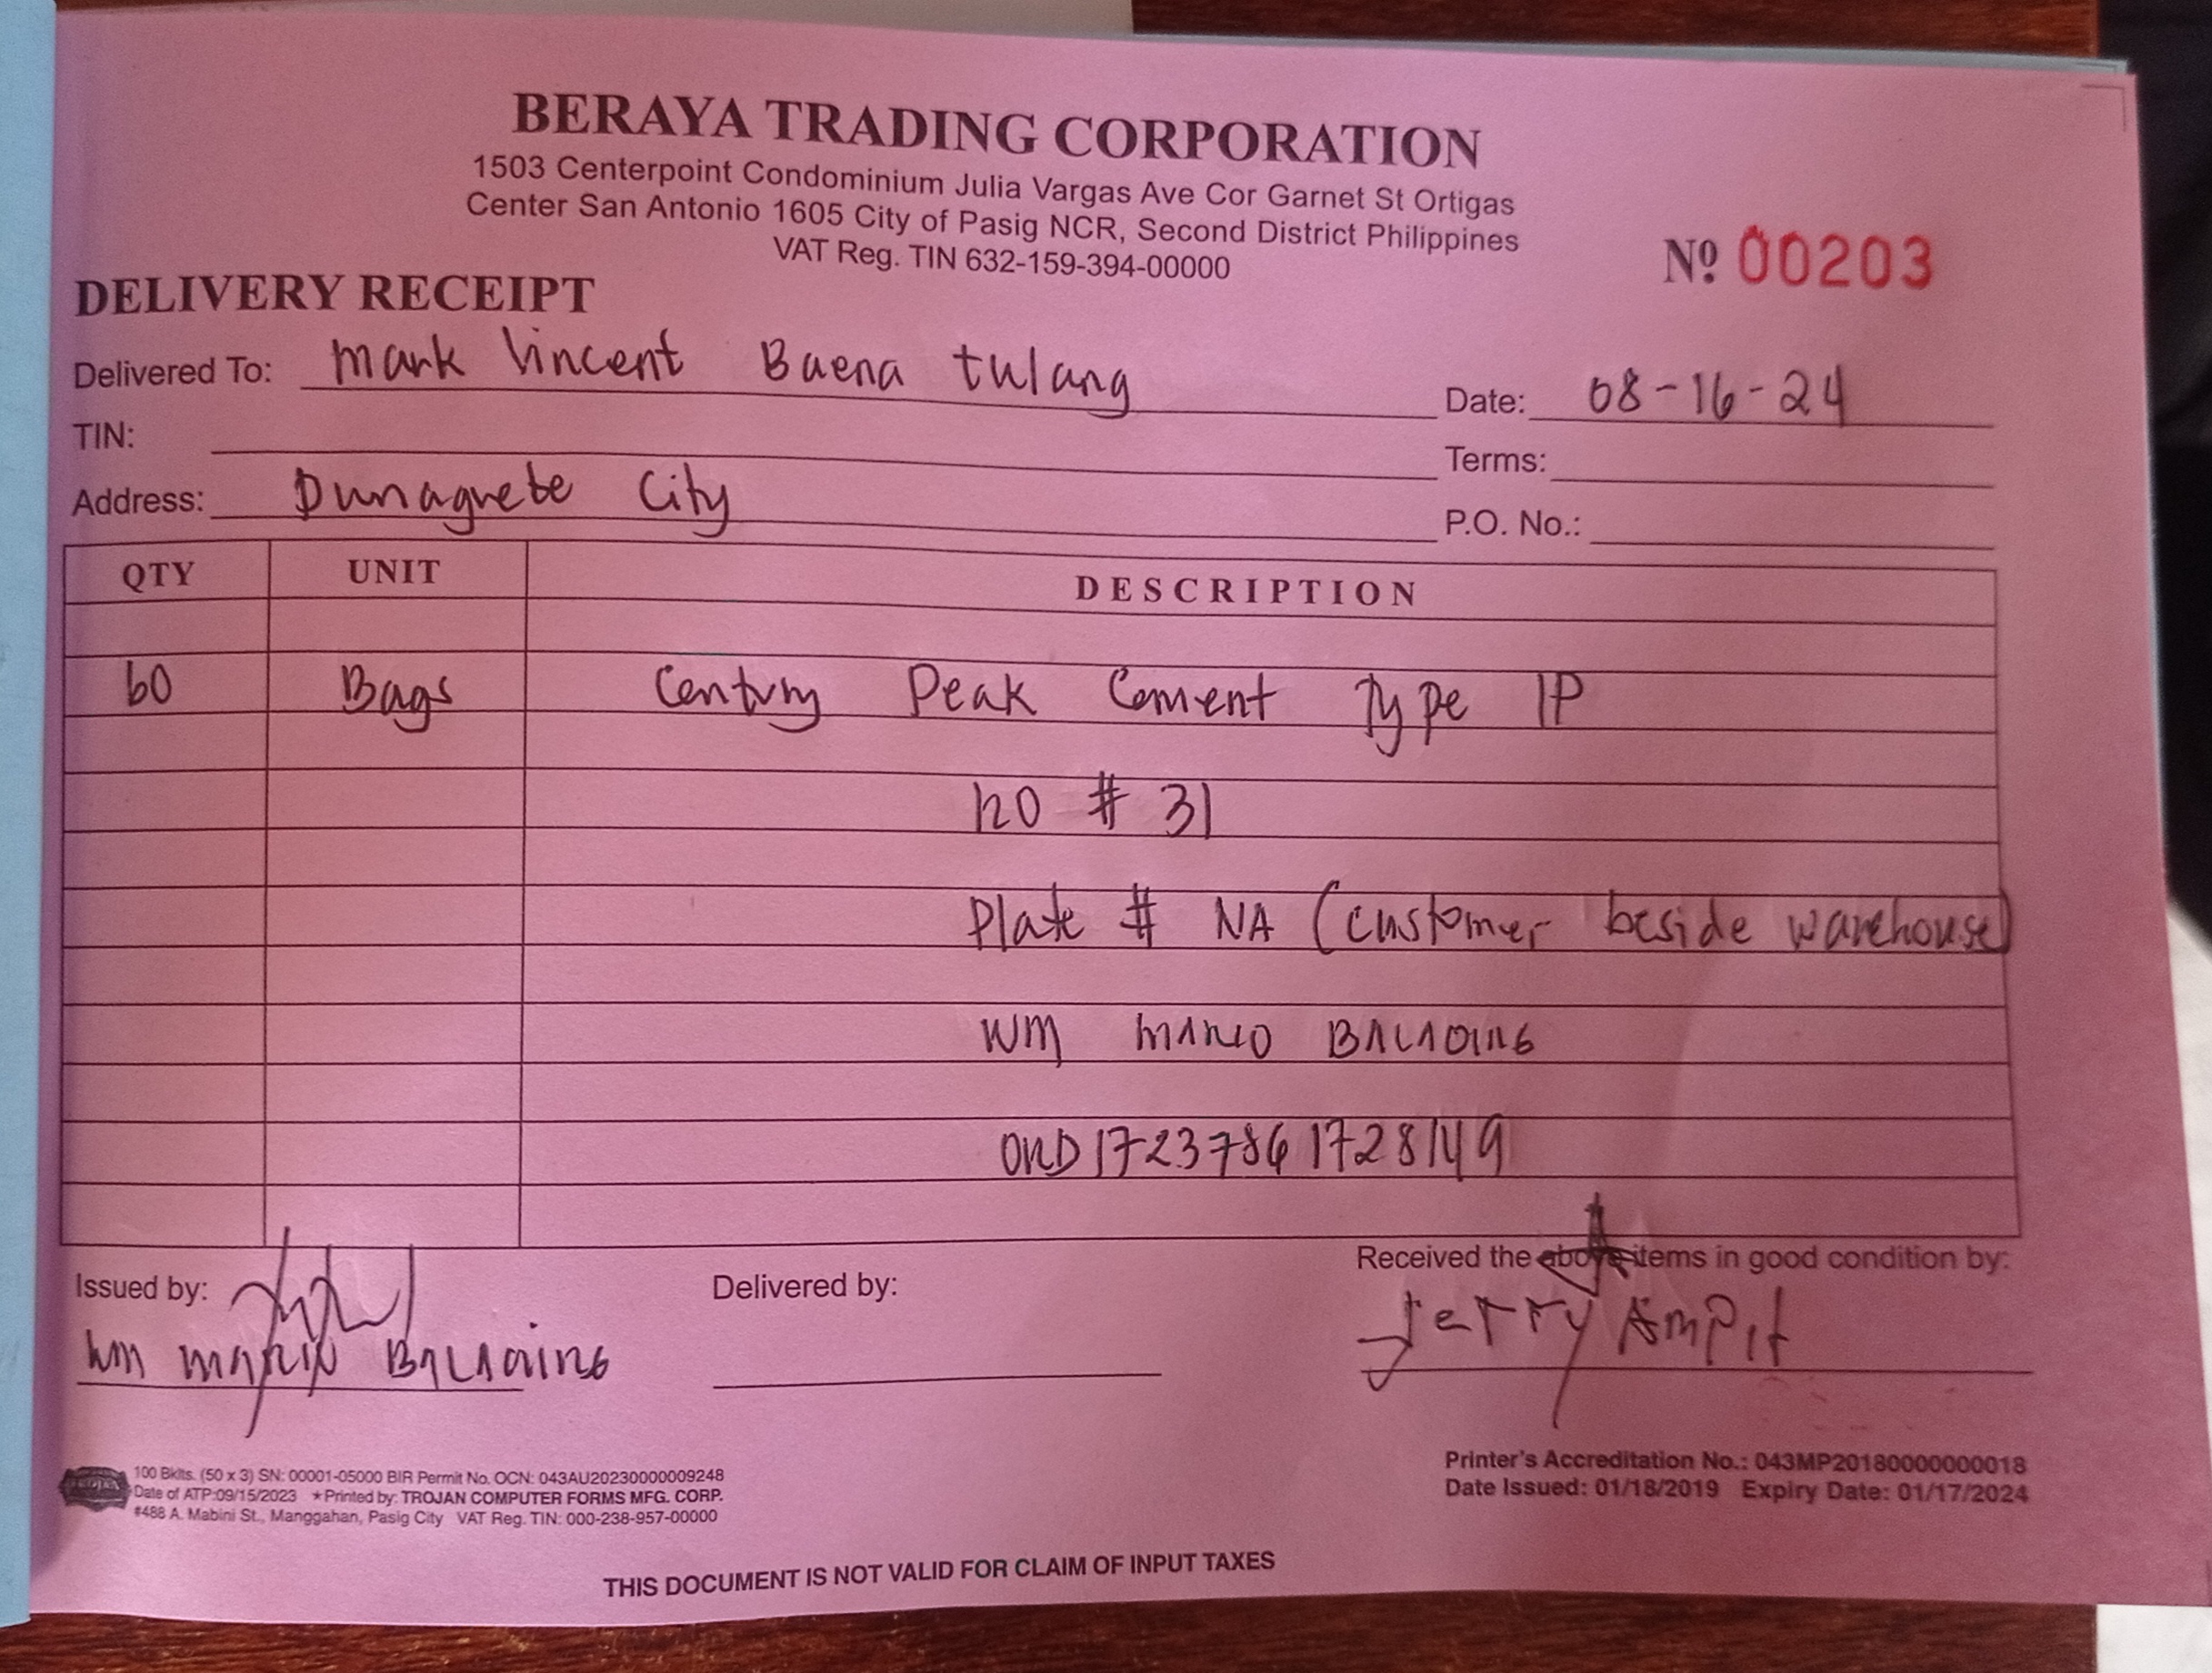 BERAYA TRADING CORPORATION
1503 Centerpoint Condominium Julia Vargas Ave Cor Garnet St Ortigas
Center San Antonio 1605 City of Pasig NCR, Second District Philippines
VAT Reg. TIN 632-159-394-00000
Nº 00203
DELIVERY RECEIPT
Delivered To: Mark Vincent Buena tulang
Date: 08-16-24
TIN:
Terms:
Address: Dunaguete City
P.O. No.:
QTY UNIT DESCRIPTION
60 Bags Century Peak Cement Type 1P
120 # 31
Plate # NA (customer beside warehouse)
WM MARIO BALAOING
ORD17237861728149
Issued by: WM MARIO BALAOING
Delivered by:
Received the above items in good condition by:
Jerry Ampit
100 Bklts. (50 x 3) SN: 00001-05000 BIR Permit No. OCN: 043AU20230000009248
Date of ATP:09/15/2023 ★Printed by: TROJAN COMPUTER FORMS MFG. CORP.
#488 A. Mabini St., Manggahan, Pasig City VAT Reg. TIN: 000-238-957-00000
Printer's Accreditation No.: 043MP20180000000018
Date Issued: 01/18/2019 Expiry Date: 01/17/2024
THIS DOCUMENT IS NOT VALID FOR CLAIM OF INPUT TAXES